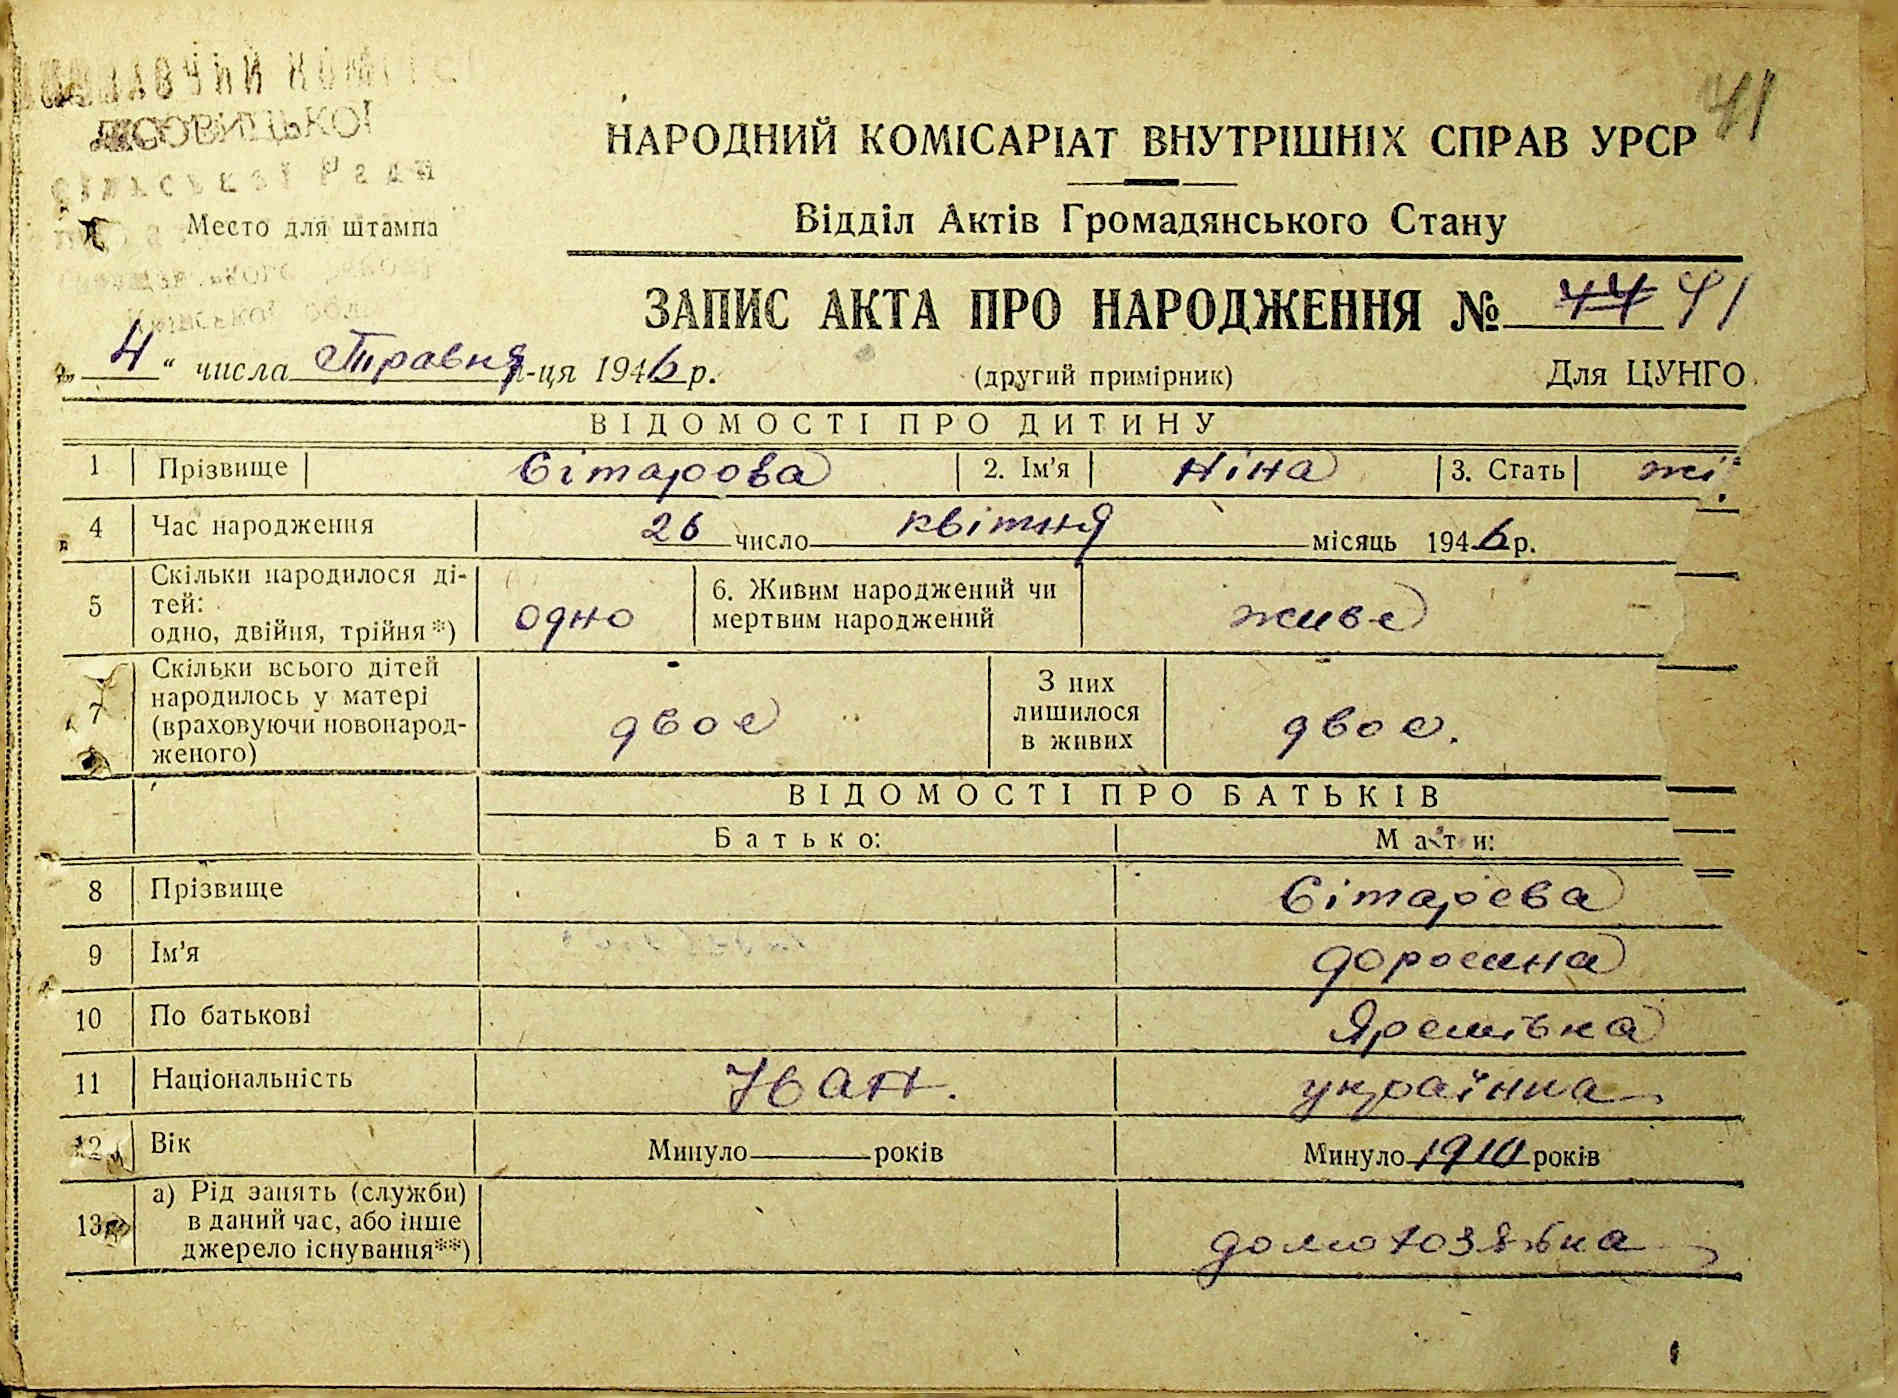 41
ЛІСОВИЦЬКОЇ
НАРОДНИЙ КОМІСАРІАТ ВНУТРІШНІХ СПРАВ УРСР
Место для штампа
Відділ Актів Громадянського Стану
ЗАПИС АКТА ПРО НАРОДЖЕННЯ № 44 41
„4“ числа Травня м-ця 1946 р. (другий примірник) Для ЦУНГО
ВІДОМОСТІ ПРО ДИТИНУ
1 Прізвище Сітарова 2. Ім'я Ніна 3. Стать жі
4 Час народження 26 число квітня місяць 1946 р.
5 Скільки народилося дітей: одно, двійня, трійня*) одно 6. Живим народжений чи мертвим народжений живе
7 Скільки всього дітей народилось у матері (враховуючи новонародженого) двоє З них лишилося в живих двоє.
ВІДОМОСТІ ПРО БАТЬКІВ
Батько: Мати:
8 Прізвище Сітарова
9 Ім'я
10 По батькові Яремівна
11 Національність Іван. українка
12 Вік Минуло роківМинуло 1910 років
13 а) Рід занять (служби) в даний час, або інше джерело існування**) домохозяйка